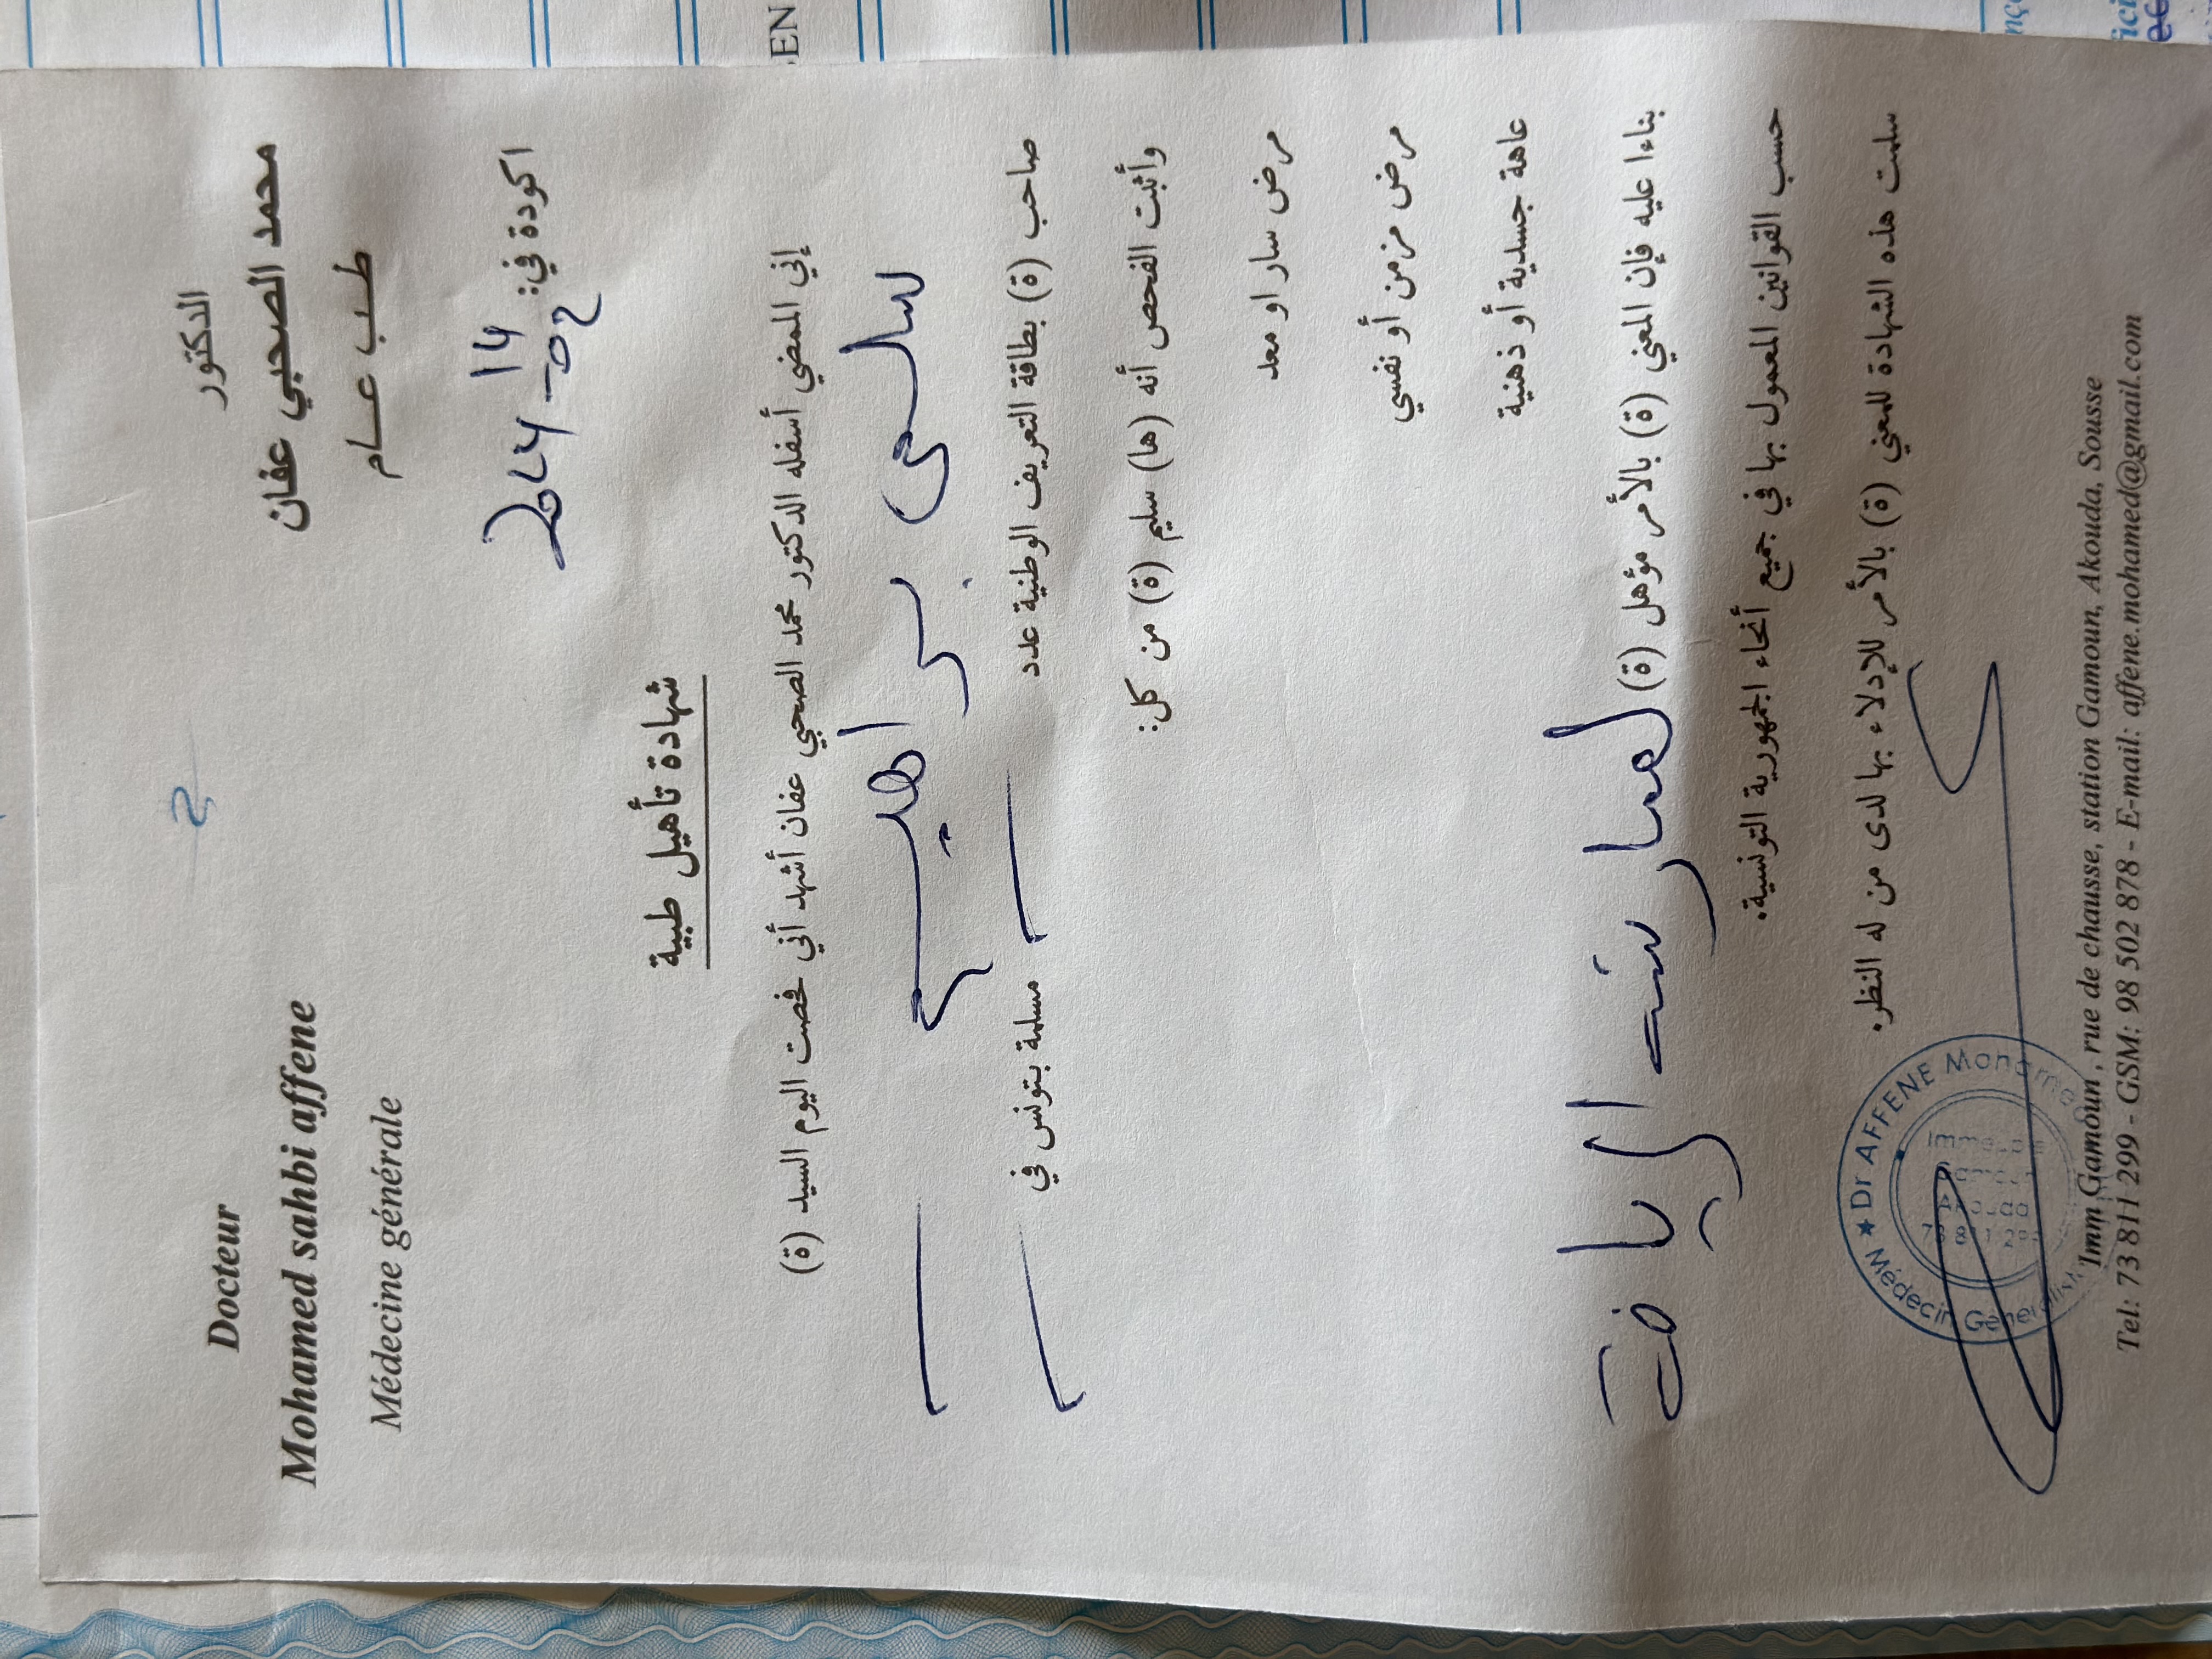 Docteur
Mohamed sahbi affene
Médecine générale
الدكتور
محمد الصحبي عفان
طب عام
اكودة في: 14
شهادة تأهيل طبية
إني الممضي أسفله الدكتور محمد الصحبي عفان أشهد أني فحصت اليوم السيد (ة)
سلمى براهيم
صاحب (ة) بطاقة التعريف الوطنية عدد مسلمة بتونس في
وأثبت الفحص أنه (ها) سليم (ة) من كل:
مرض سار او معد
مرض مزمن أو نفسي
عاهة جسدية أو ذهنية
بناءا عليه فإن المعني (ة) بالأمر مؤهل (ة) لممارسة الرياضة
حسب القوانين المعمول بها في جميع أنحاء الجمهورية التونسية.
سلمت هذه الشهادة للمعني (ة) بالأمر للإدلاء بها لدى من له النظر.
★ Dr AFFENE Mohamed
Médecin Généraliste
Imm Gamoun , rue de chausse, station Gamoun, Akouda, Sousse
Tel: 73 811 299 - GSM: 98 502 878 - E-mail: affene.mohamed@gmail.com